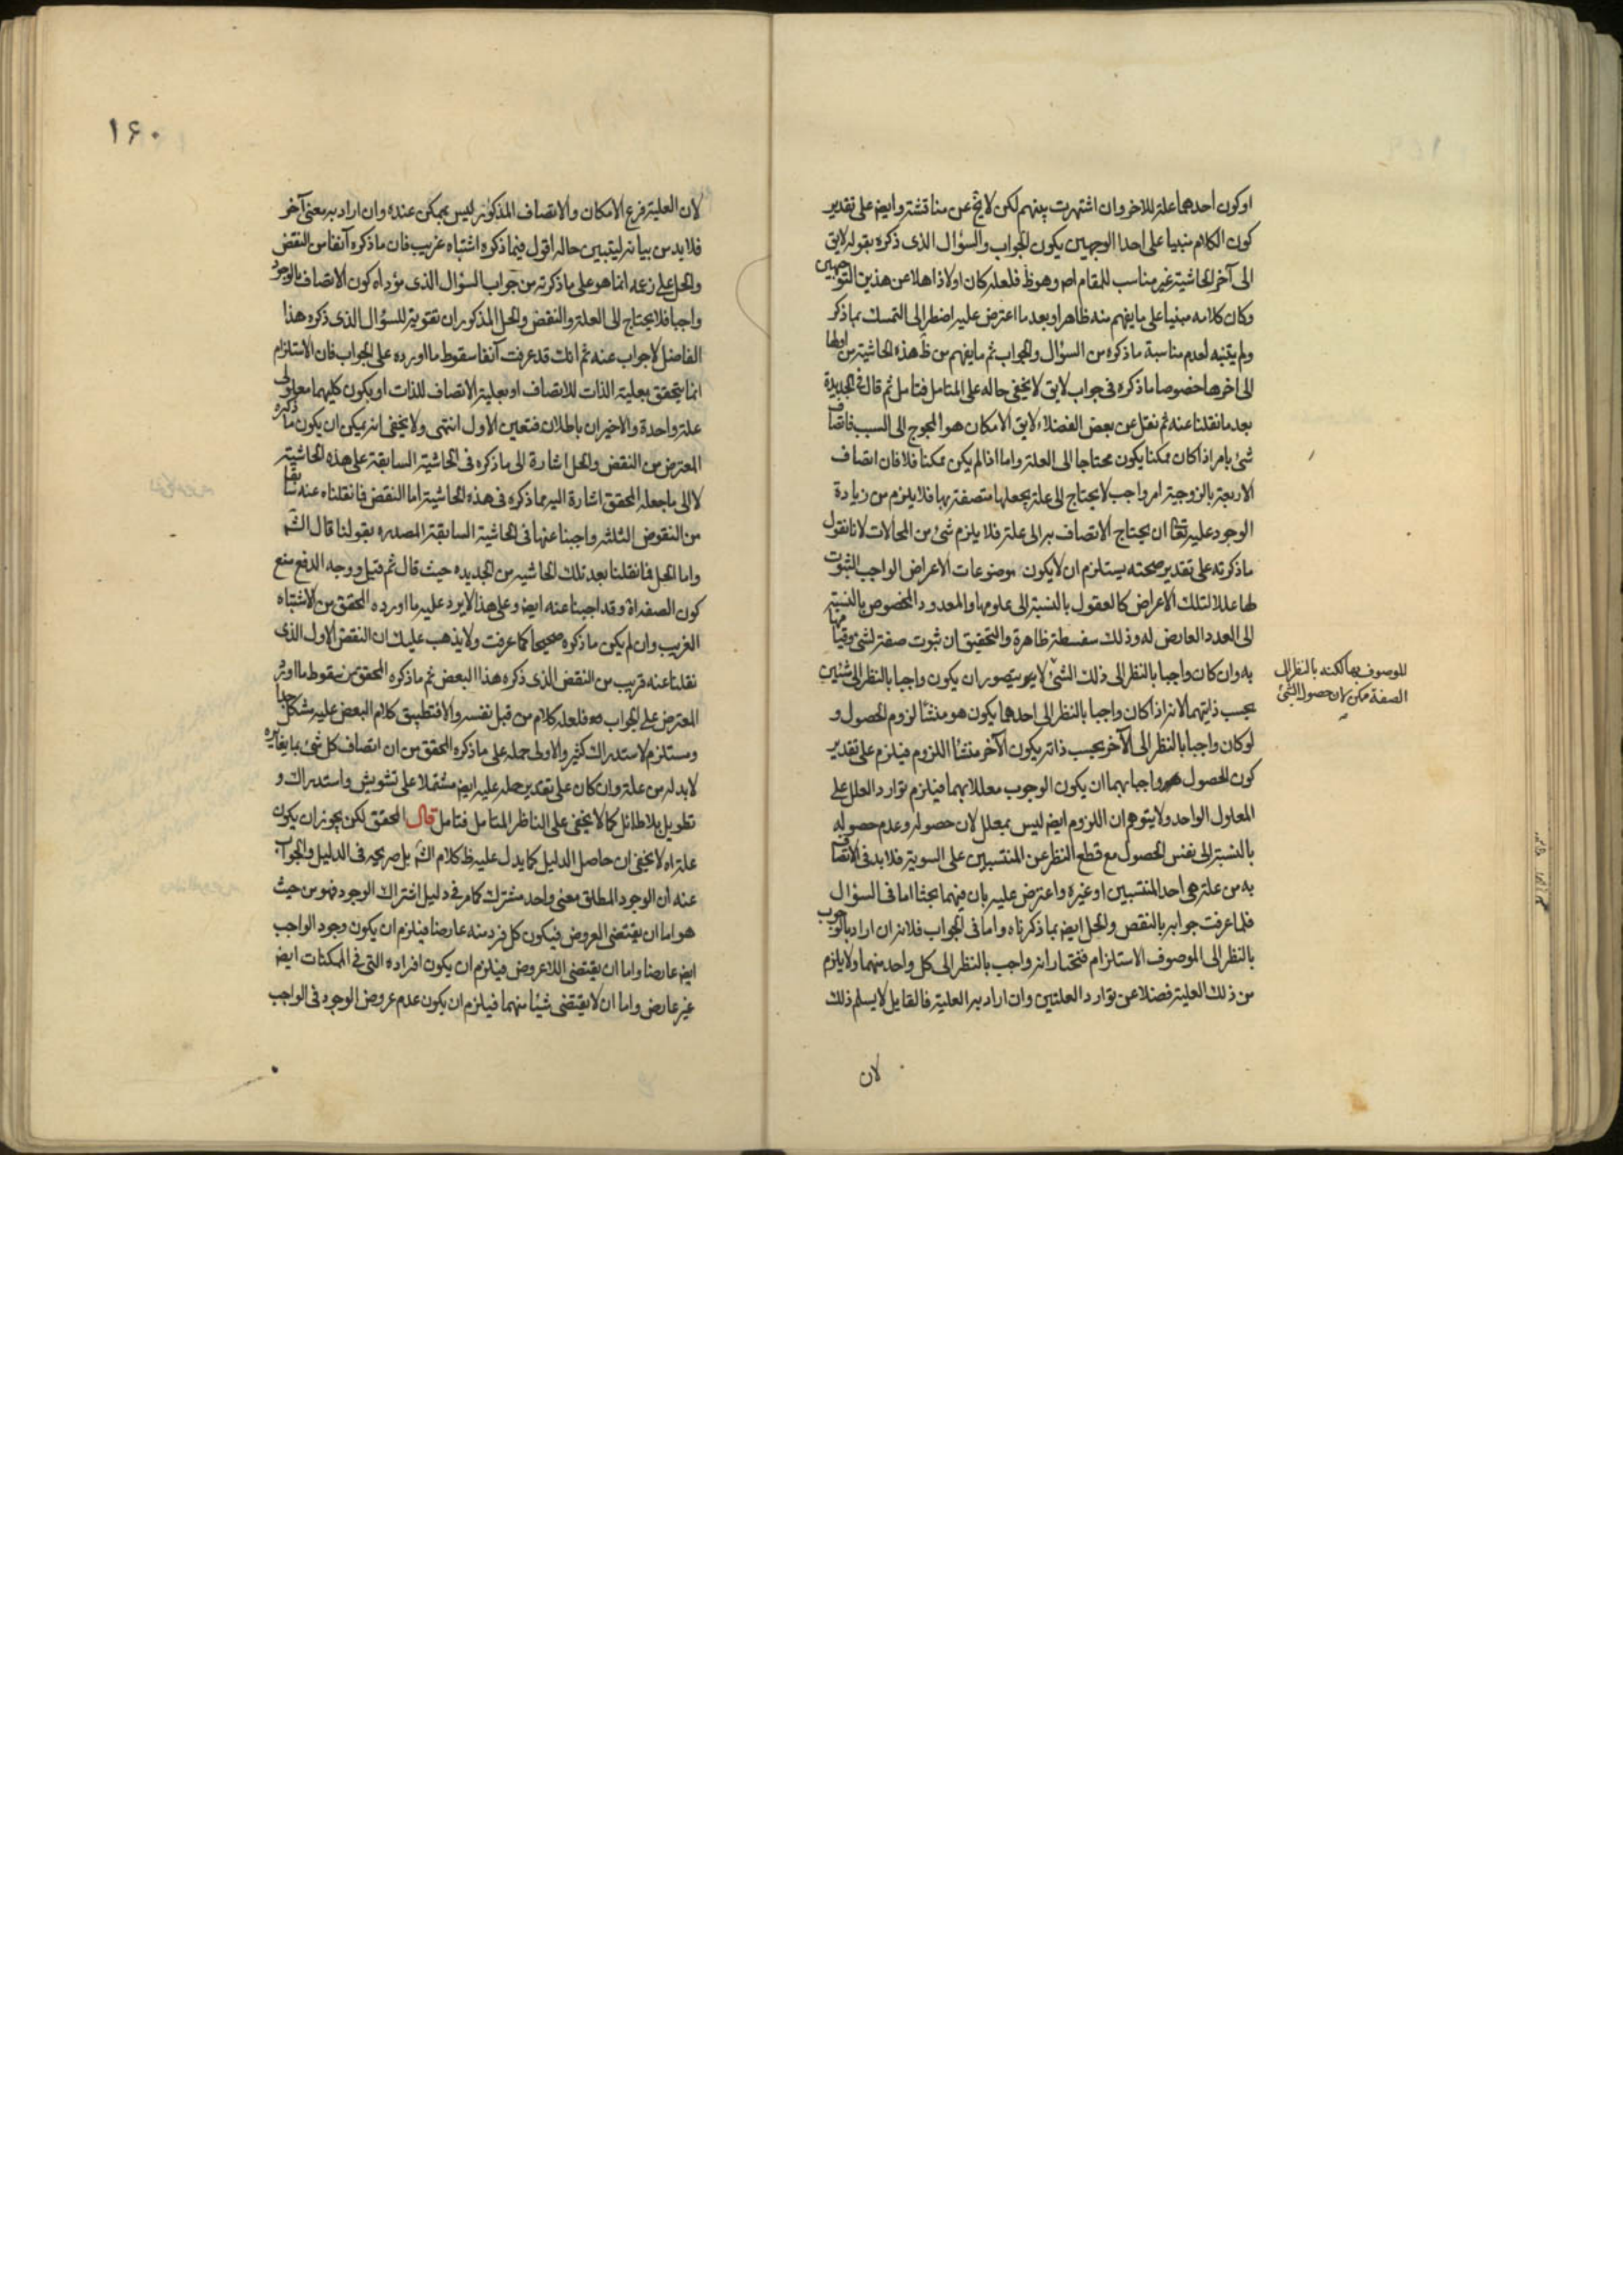 او كون أحدهما علة للاخر وان اشتهرت بينهم لكن لا يخ عن مناقشة وايض على تقدير
كون الكلام مبنيا على احدا الوجهين يكون الجواب والسؤال الذى ذكره بقوله لايق
الى آخر الحاشية غير مناسب للمقام اصه وهو ظ فلعله كان اولا ذاهلا عن هذين التوجهين
وكان كلامه مبنيا على ما يفهم منه ظاهرا وبعد ما اعترض عليه اضطر الى التمسك بما ذكر
ولم يتنبه لعدم مناسبة ما ذكره من السؤال والجواب ثم ما يفهم من ظ هذه الحاشية من اولها
الى اخرها خصوصا ما ذكره فى جواب لايق لا يخفى حاله على المتامل فتامل ثم قال فى الجديدة
بعد ما نقلنا عنه ثم نقل عن بعض الفضلاء لايق الامكان هو المحوج الى السبب فاتصاف
شئ بامر اذا كان ممكنا يكون محتاجا الى العلة واما اذا لم يكن ممكنا فلا فان اتصاف
الاربعة بالزوجية امر واجب لا يحتاج الى علة يجعلها متصفة بها فلا يلزم من زيادة
الوجود عليه تعا ان يحتاج الاتصاف به الى علة فلا يلزم شئ من المحالات لانا نقول
ما ذكرته على تقدير صحته يستلزم ان لا يكون موضوعات الاعراض الواجب الثبوت
لها عللا لتلك الاعراض كالعقول بالنسبة الى علومها والمعدود المخصوص بالنسبة
الى العدد العارض له وذلك سفسطة ظاهرة والتحقيق ان ثبوت صفة لشئ وقيامها
به وان كان واجبا بالنظر الى ذلك الشئ لا يتصور ان يكون واجبا بالنظر الى شئين
بحسب ذاتيهما لانه اذا كان واجبا بالنظر الى احدهما يكون هو منشأ لزوم الحصول و
لو كان واجبا بالنظر الى الآخر بحسب ذاته يكون الآخر منشأ اللزوم فيلزم على تقدير
كون الحصول واجبا بهما ان يكون الوجوب معللا بهما فيلزم توارد العلل على
المعلول الواحد ولا يتوهم ان اللزوم ايض ليس بمعلل لان حصوله وعدم حصوله
بالنسبة الى نفس الحصول مع قطع النظر عن المنتسبين على السوية فلا بد فى الاتصاف
به من علة هى احد المنتسبين او غيره واعترض عليه بان فيهما بحثا اما فى السؤال
فلما عرفت جوابه بالنقض والحل ايض بما ذكرناه واما فى الجواب فلانه ان اراد بالوجوب
بالنظر الى الموصوف الاستلزام فنختار انه واجب بالنظر الى كل واحد منهما ولا يلزم
من ذلك العلية فضلا عن توارد العلتين وان اراد به العلية فالقايل لا يسلم ذلك
لان
للموصوف بها لكنه بالنظر الى
الصفة ممكن لان حصول الشئ
١۶٠
لان العلية فرع الامكان والاتصاف المذكور ليس بممكن عنده وان اراد به معنى آخر
فلا بد من بيانه ليتبين حاله اقول فيما ذكره اشتباه غريب فان ما ذكره آنفا من النقض
والحل على زعمه انما هو على ما ذكرته من جواب السؤال الذى مؤداه كون الاتصاف بالوجود
واجبا فلا يحتاج الى العلة والنقض والحل المذكوران تقوية للسؤال الذى ذكره هذا
الفاضل لا جواب عنه ثم انك قد عرفت آنفا سقوط ما اورده على الجواب فان الاستلزام
انما يتحقق بعلية الذات للاتصاف او بعلية الاتصاف للذات او يكون كليهما معلولى
علة واحدة والاخيران باطلان فتعين الاول انتهى ولا يخفى انه يمكن ان يكون ما ذكره
المعترض من النقض والحل اشارة الى ما ذكره فى الحاشية السابقة على هذه الحاشية
لا الى ما جعله المحقق اشارة اليه مما ذكره فى هذه الحاشية اما النقض فما نقلناه عنه سابقا
من النقوض الثلثه واجبنا عنها فى الحاشية السابقة المصدره بقولنا قال الش
واما الحل فما نقلنا بعد تلك الحاشيه من الجديده حيث قال ثم قيل ووجه الدفع منع
كون الصفه اه وقد اجبنا عنه ايض وعلى هذا لا يرد عليه ما اورده المحقق من الاشتباه
الغريب وان لم يكن ما ذكره صحيحا كما عرفت ولا يذهب عليك ان النقض الاول الذى
نقلنا عنه قريب من النقض الذى ذكره هذا البعض ثم ما ذكره المحقق من سقوط ما اورد
المعترض على الجواب فلعله كلام من قبل نفسه والا فتطبيق كلام البعض عليه مشكل جدا
ومستلزم لاستدراك كثير والاولى حمله على ما ذكره المحقق من ان اتصاف كل شئ بما يغايره
لا بد له من علة وان كان على تقدير حمله عليه ايض مشتملا على تشويش واستدراك و
تطويل بلا طائل كما لا يخفى على الناظر المتامل فتامل قال المحقق لكن يجوز ان يكون
علة اه لا يخفى ان حاصل الدليل كما يدل عليه ظ كلام الش بل صريحه فى الدليل والجواب
عنه ان الوجود المطلق معنى واحد مشترك كما مر فى دليل اشتراك الوجود فهو من حيث
هو اما ان يقتضى العروض فيكون كل فرد منه عارضا فيلزم ان يكون وجود الواجب
ايض عارضا واما ان يقتضى اللاعروض فيلزم ان يكون افراده التى فى الممكنات ايض
غير عارض واما ان لا يقتضى شيئا منهما فيلزم ان يكون عدم عروض الوجود فى الواجب